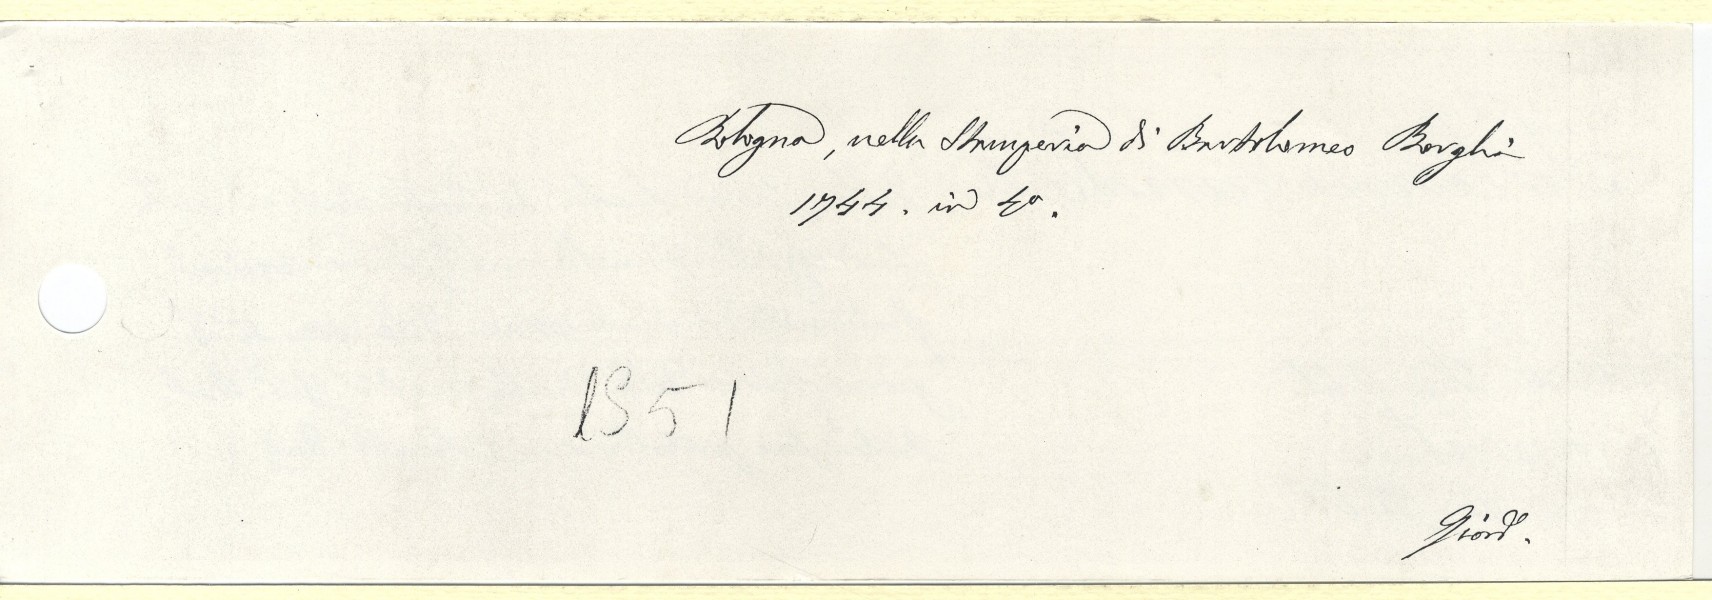 Bologna, nella Stamperia di Bartolomeo Borghi
1744. in 4o.
1851
Giord.